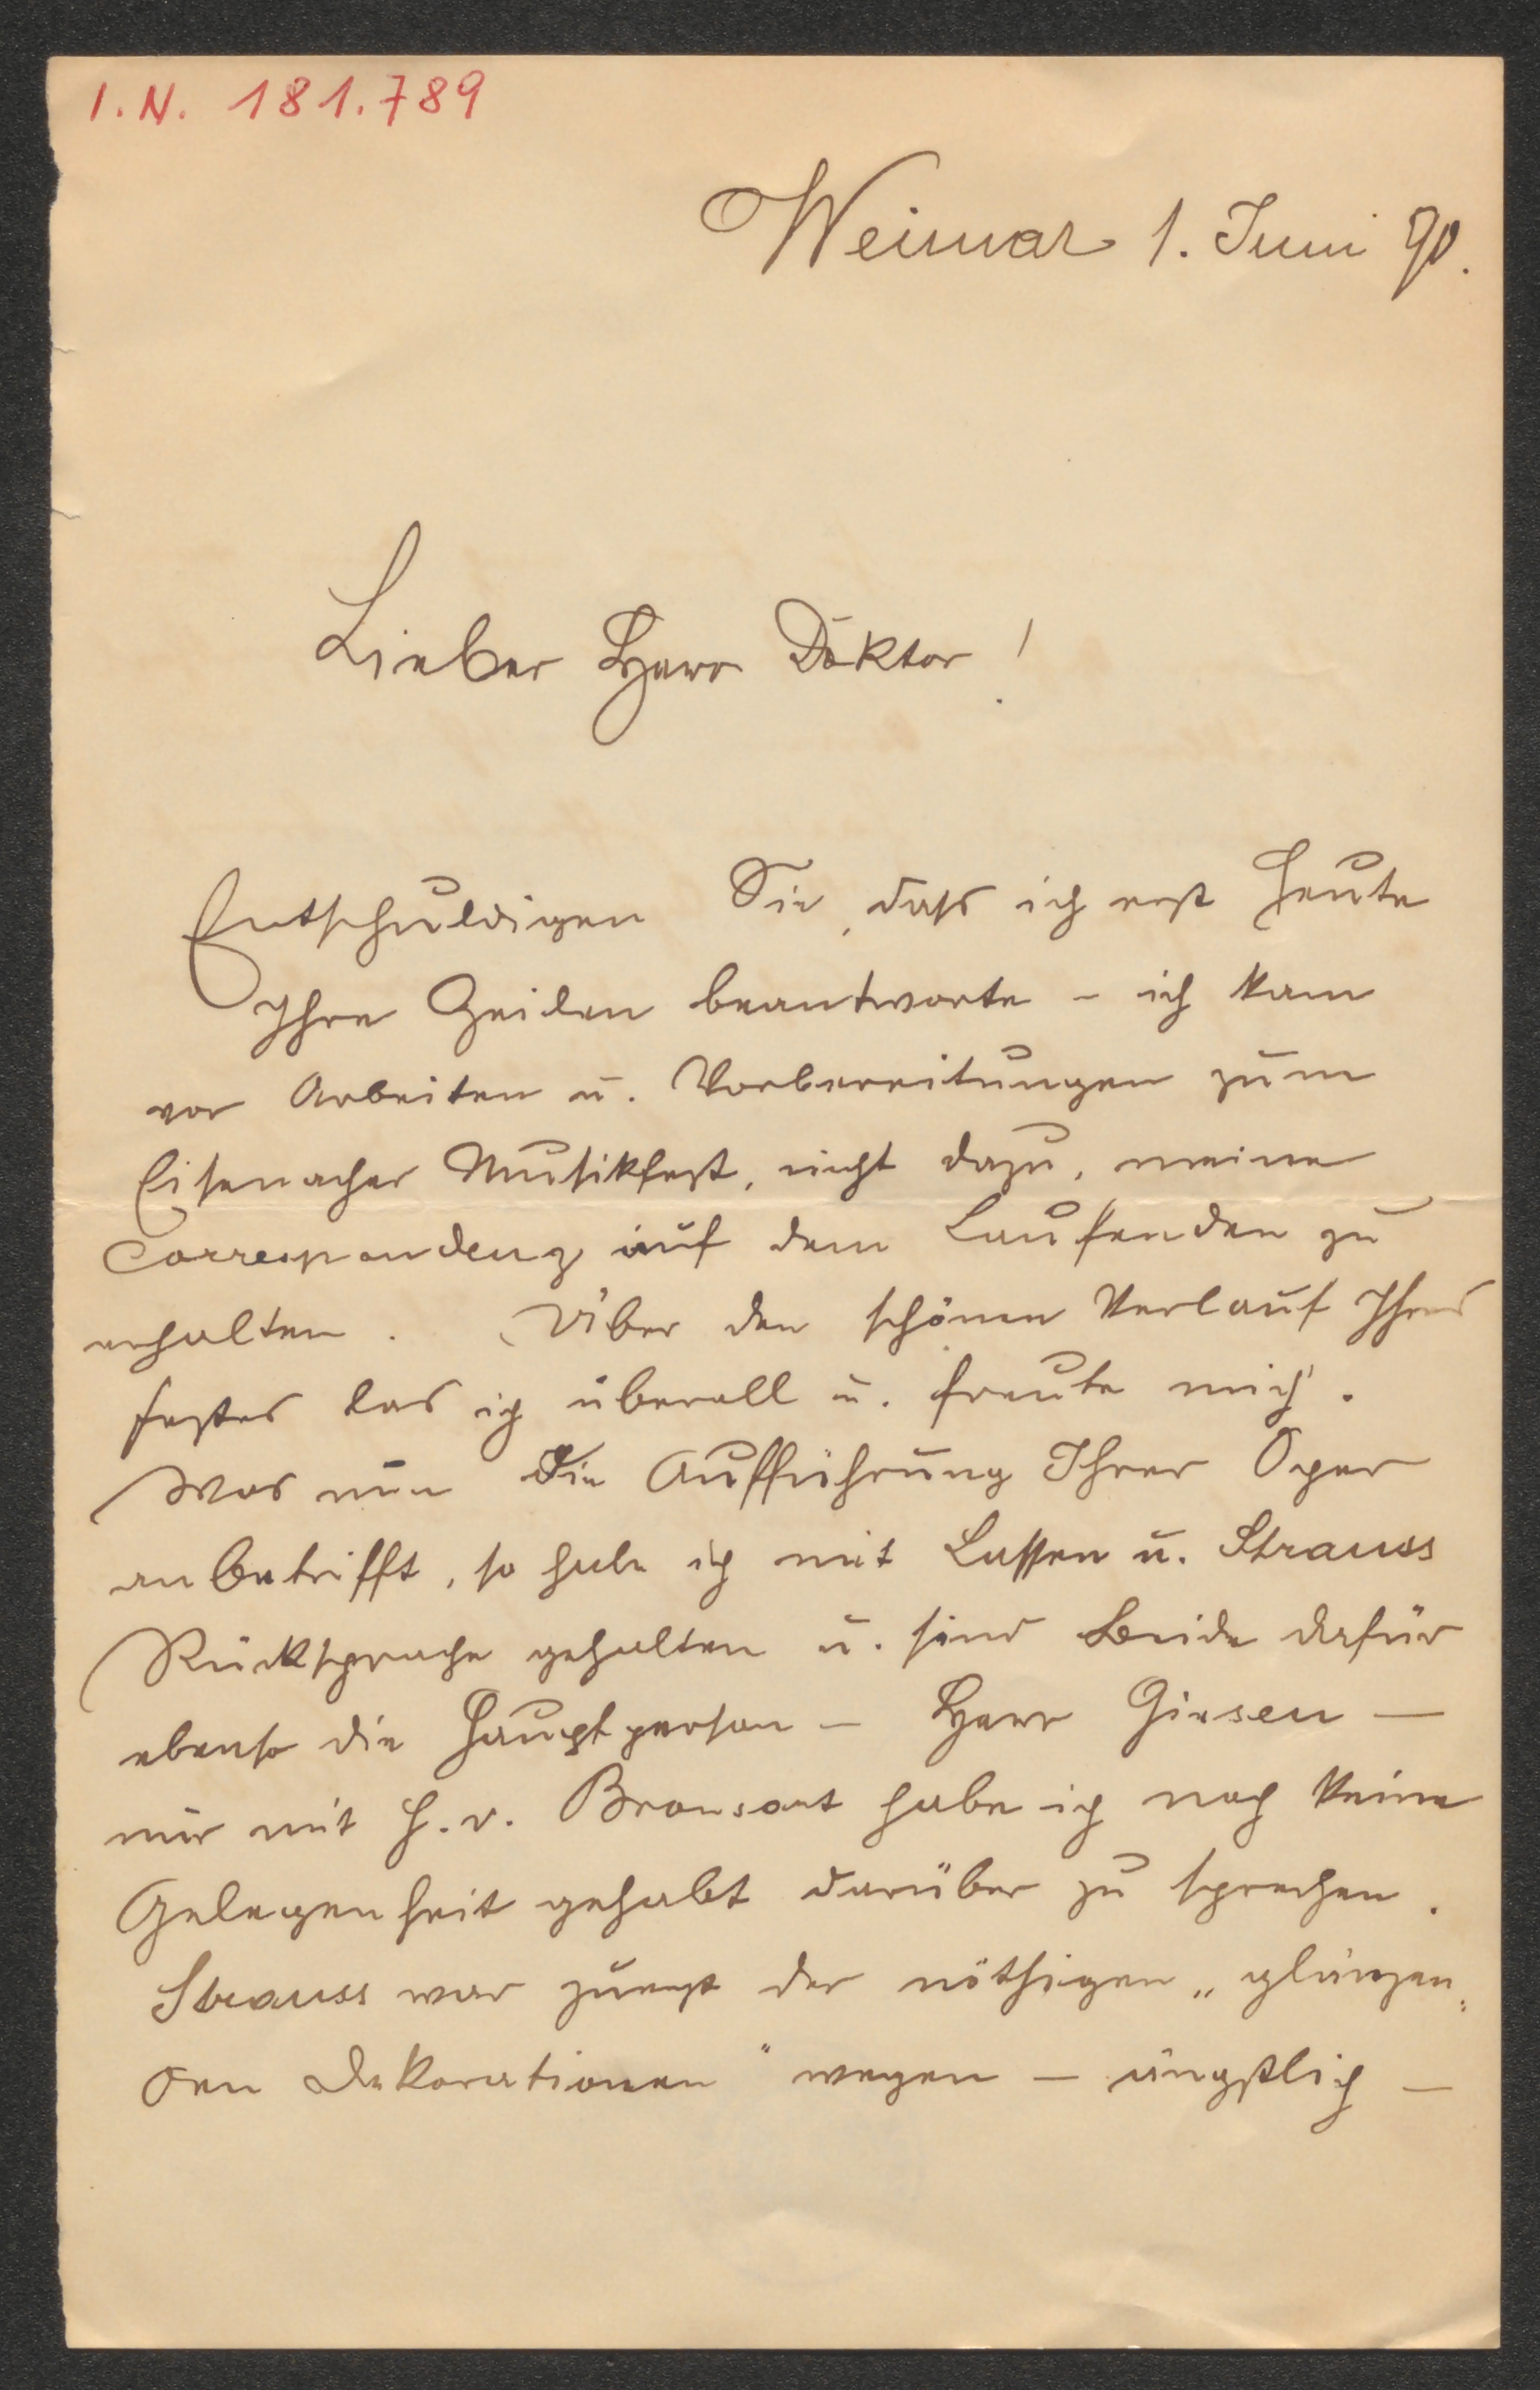 I.N. 181.789
Weimar 1. Juni 90.
Lieber Herr Doktor!
Entschuldigen Sie, dass ich erst heute
Ihre Zeilen beantworte – ich kam
vor Arbeiten u. Vorbereitungen zum
Eisenacher Musikfest, nicht dazu, meine
Correspondenz auf dem Laufenden zu
erhalten. Über den schönen Verlauf Ihres
Festes las ich überall u. freute mich.
Was nun die Aufführung Ihrer Oper
anbetrifft, so habe ich mit Lassen u. Strauss
Rücksprache gehalten u. sind Beide dafür
ebenso die Hauptperson – Herr Giesen –
nur mit H. v. Bronsart habe ich noch keine
Gelegenheit gehabt darüber zu sprechen.
Strauss war zuerst der nöthigen „glänzen-
den Dekorationen" wegen – ängstlich –